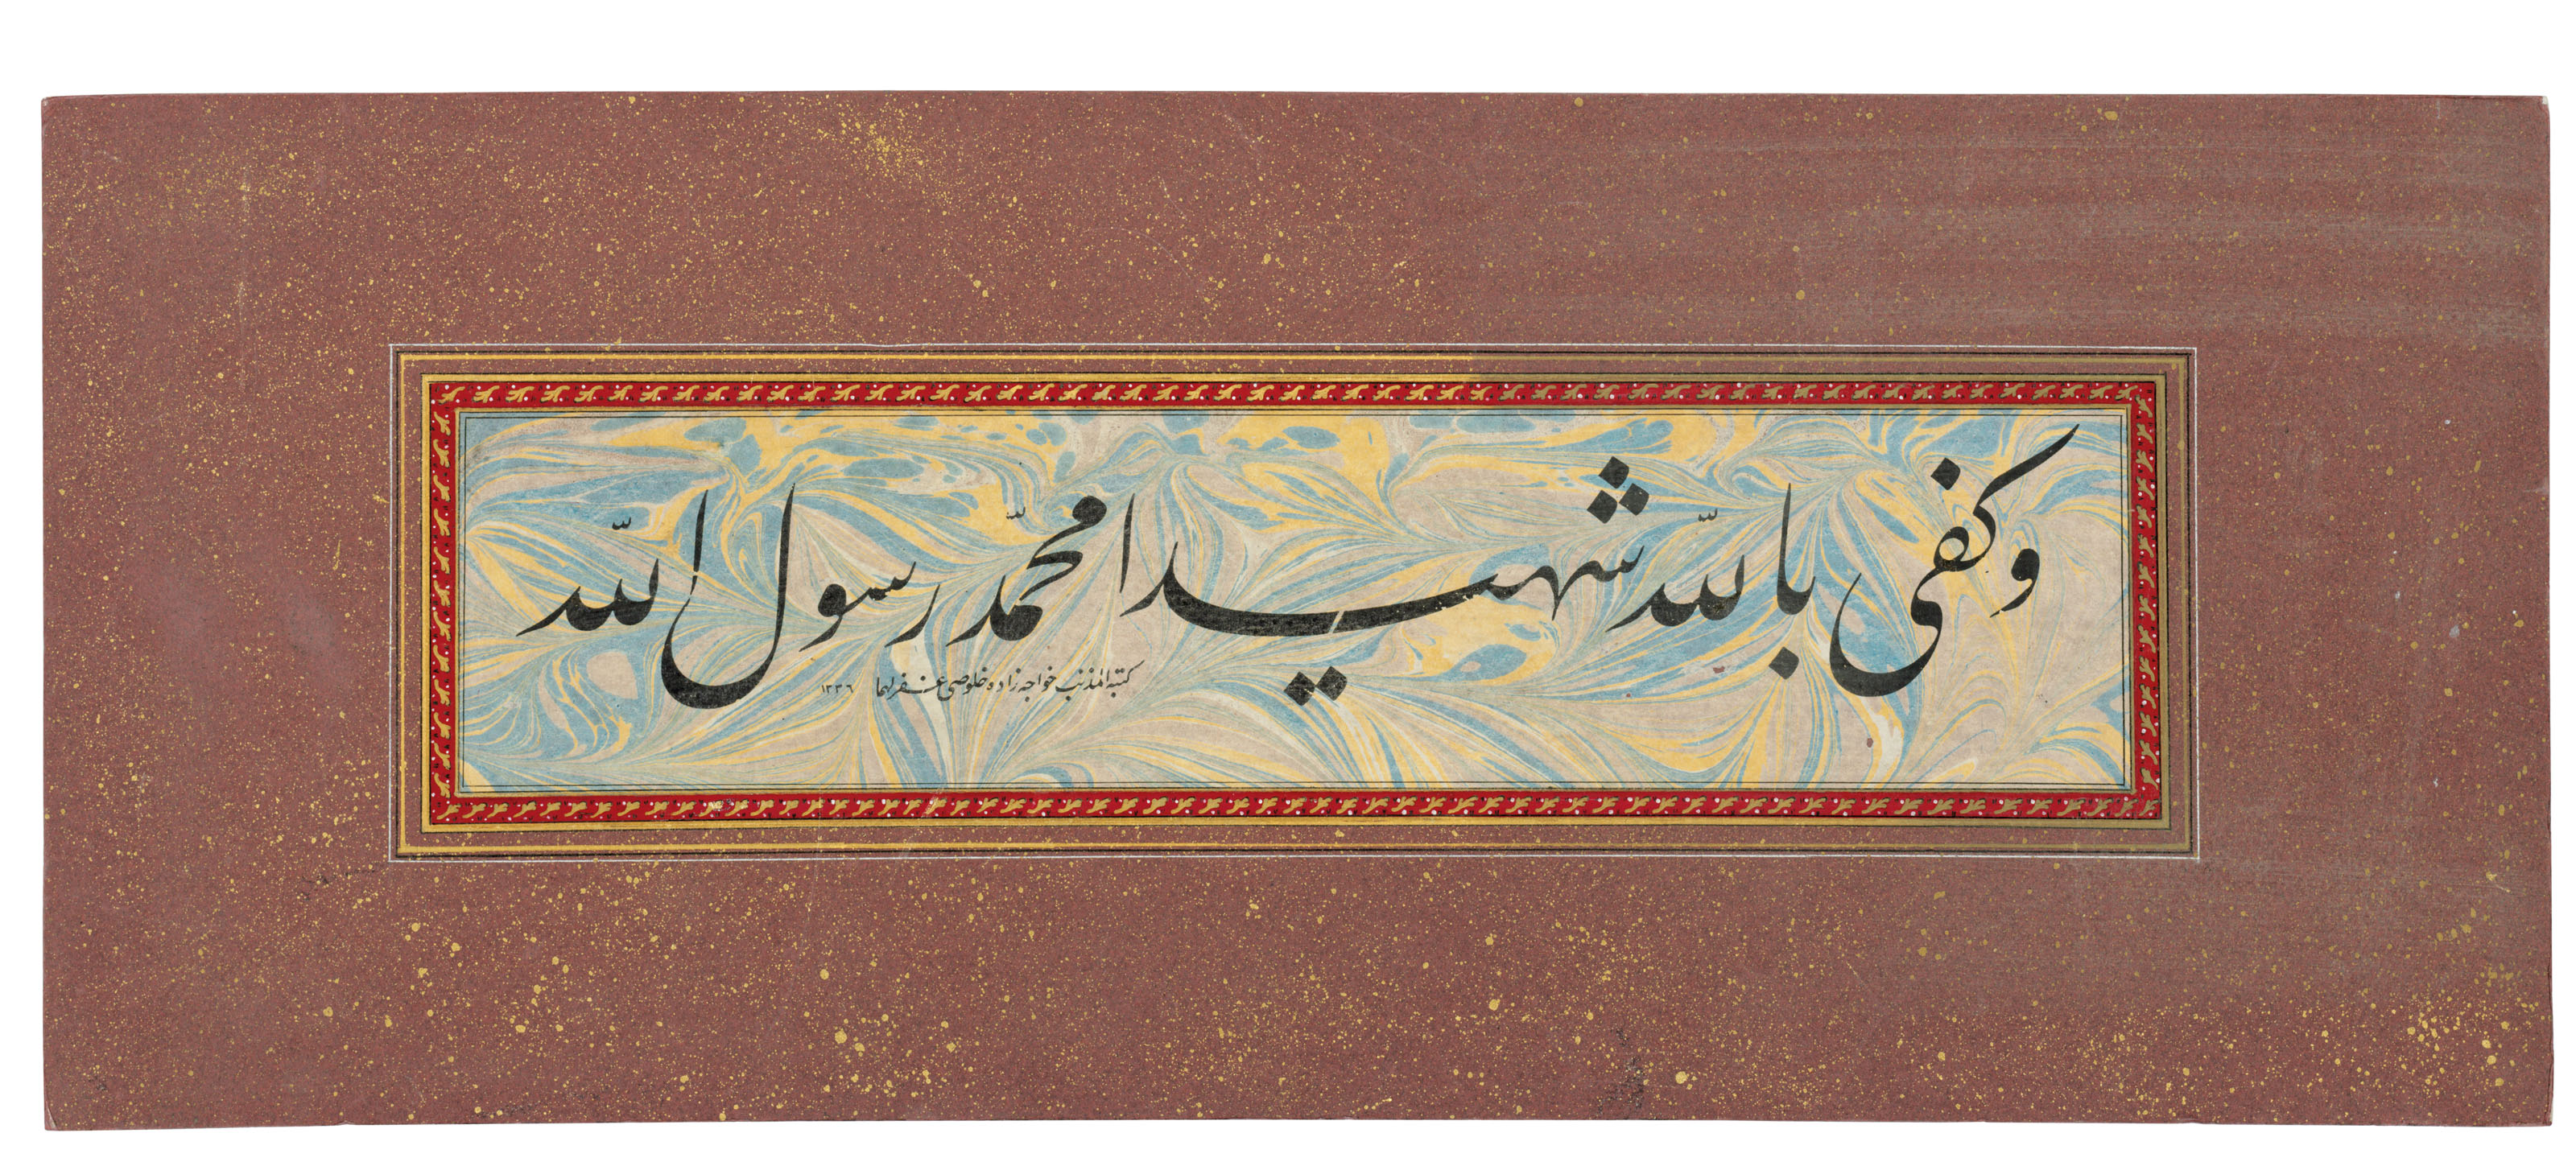 وكفى بالله شهيدا محمّد رسول الله
كتبه المذنب خواجه زاده خلوصي غفر لهما ١٣٣٦